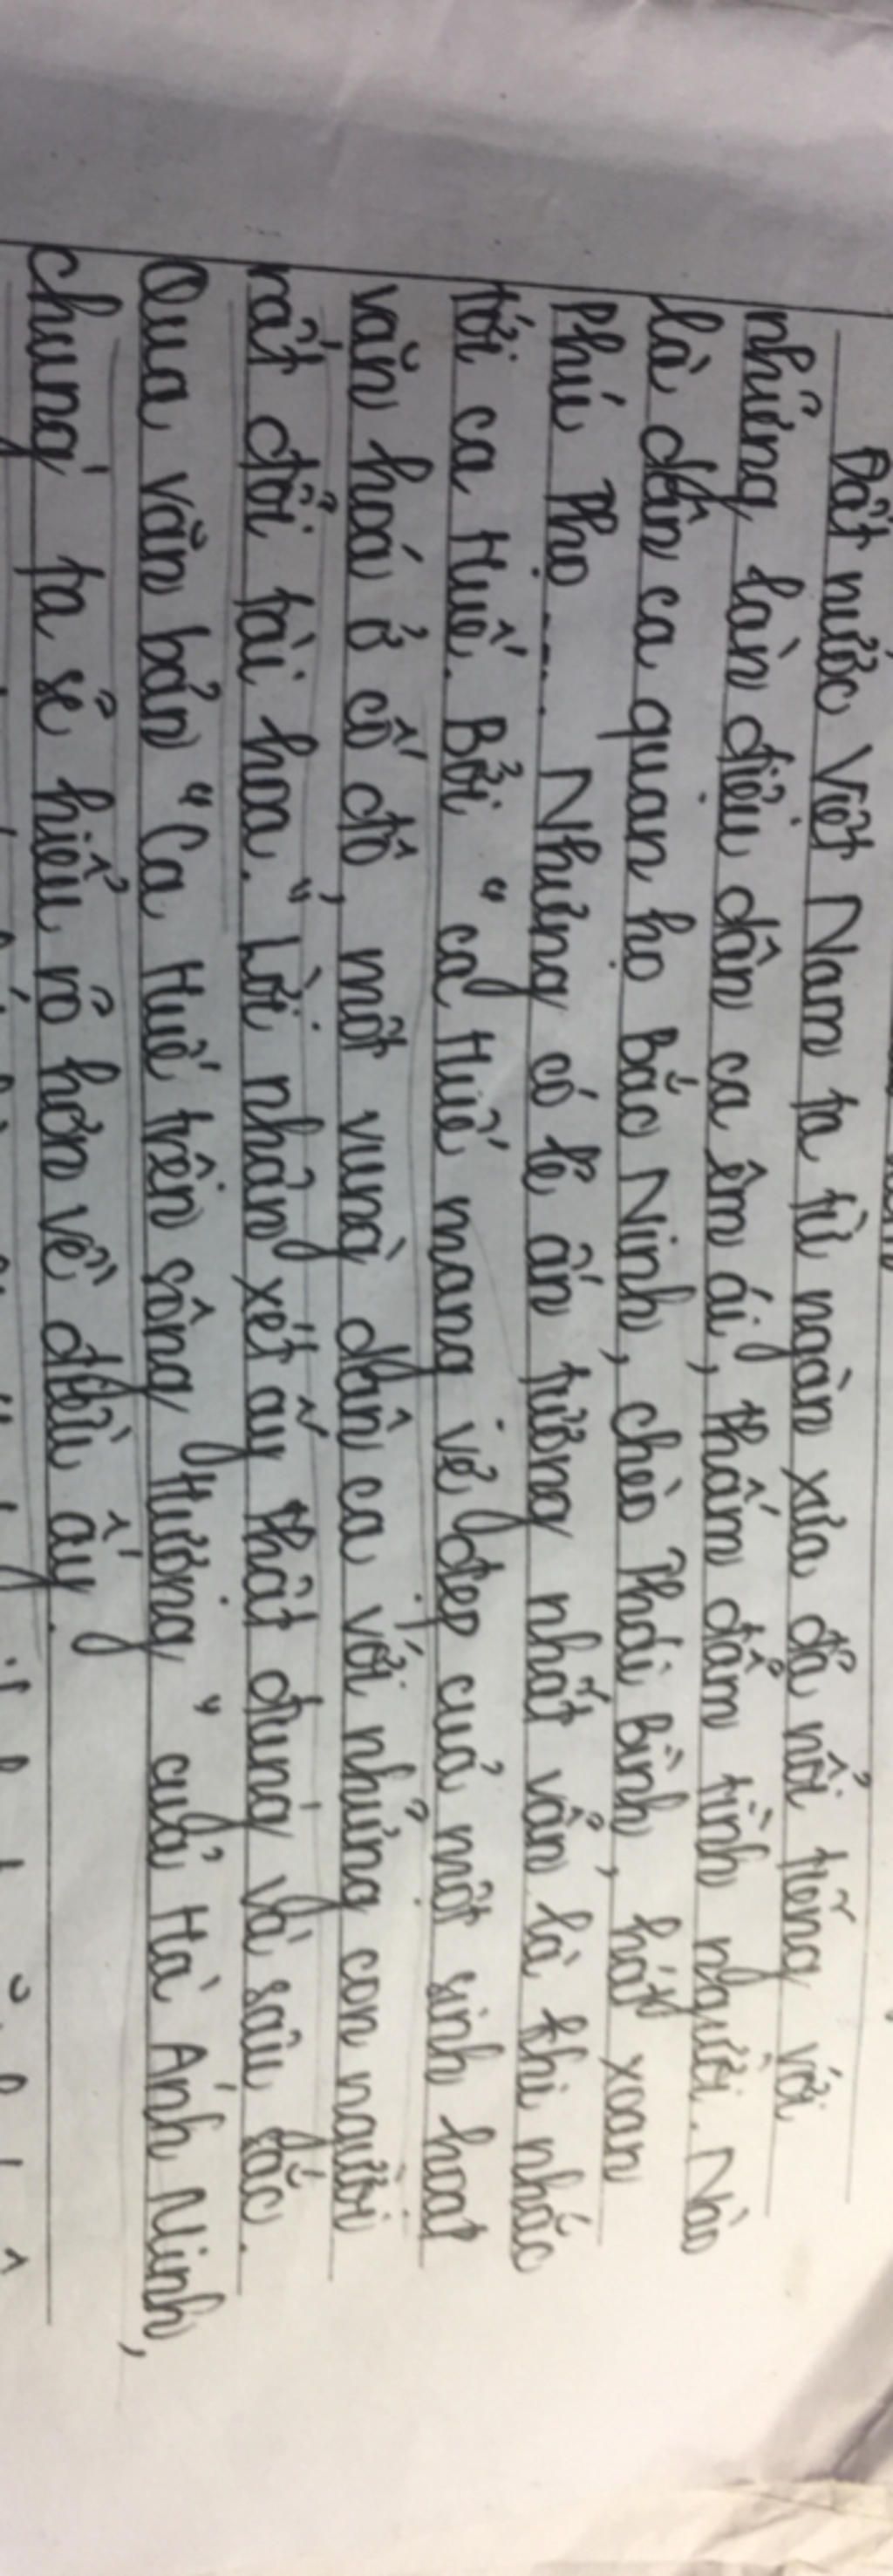 Đất nước Việt Nam ta từ ngàn xưa đã nổi tiếng với
những làn điệu dân ca êm ái, thấm đẫm tình người. Nào
là dân ca quan họ Bắc Ninh, chèo Thái Bình, hát xoan
Phú Thọ.... Nhưng có lẽ ấn tượng nhất vẫn là khi nhắc
tới ca Huế. Bởi "ca Huế mang vẻ đẹp của một sinh hoạt
văn hoá ở cố đô, một vùng dân ca với những con người
rất đỗi tài hoa." Lời nhận xét ấy thật đúng và sâu sắc.
Qua văn bản "Ca Huế trên sông Hương" của Hà Ánh Minh,
chúng ta sẽ hiểu rõ hơn về điều ấy.